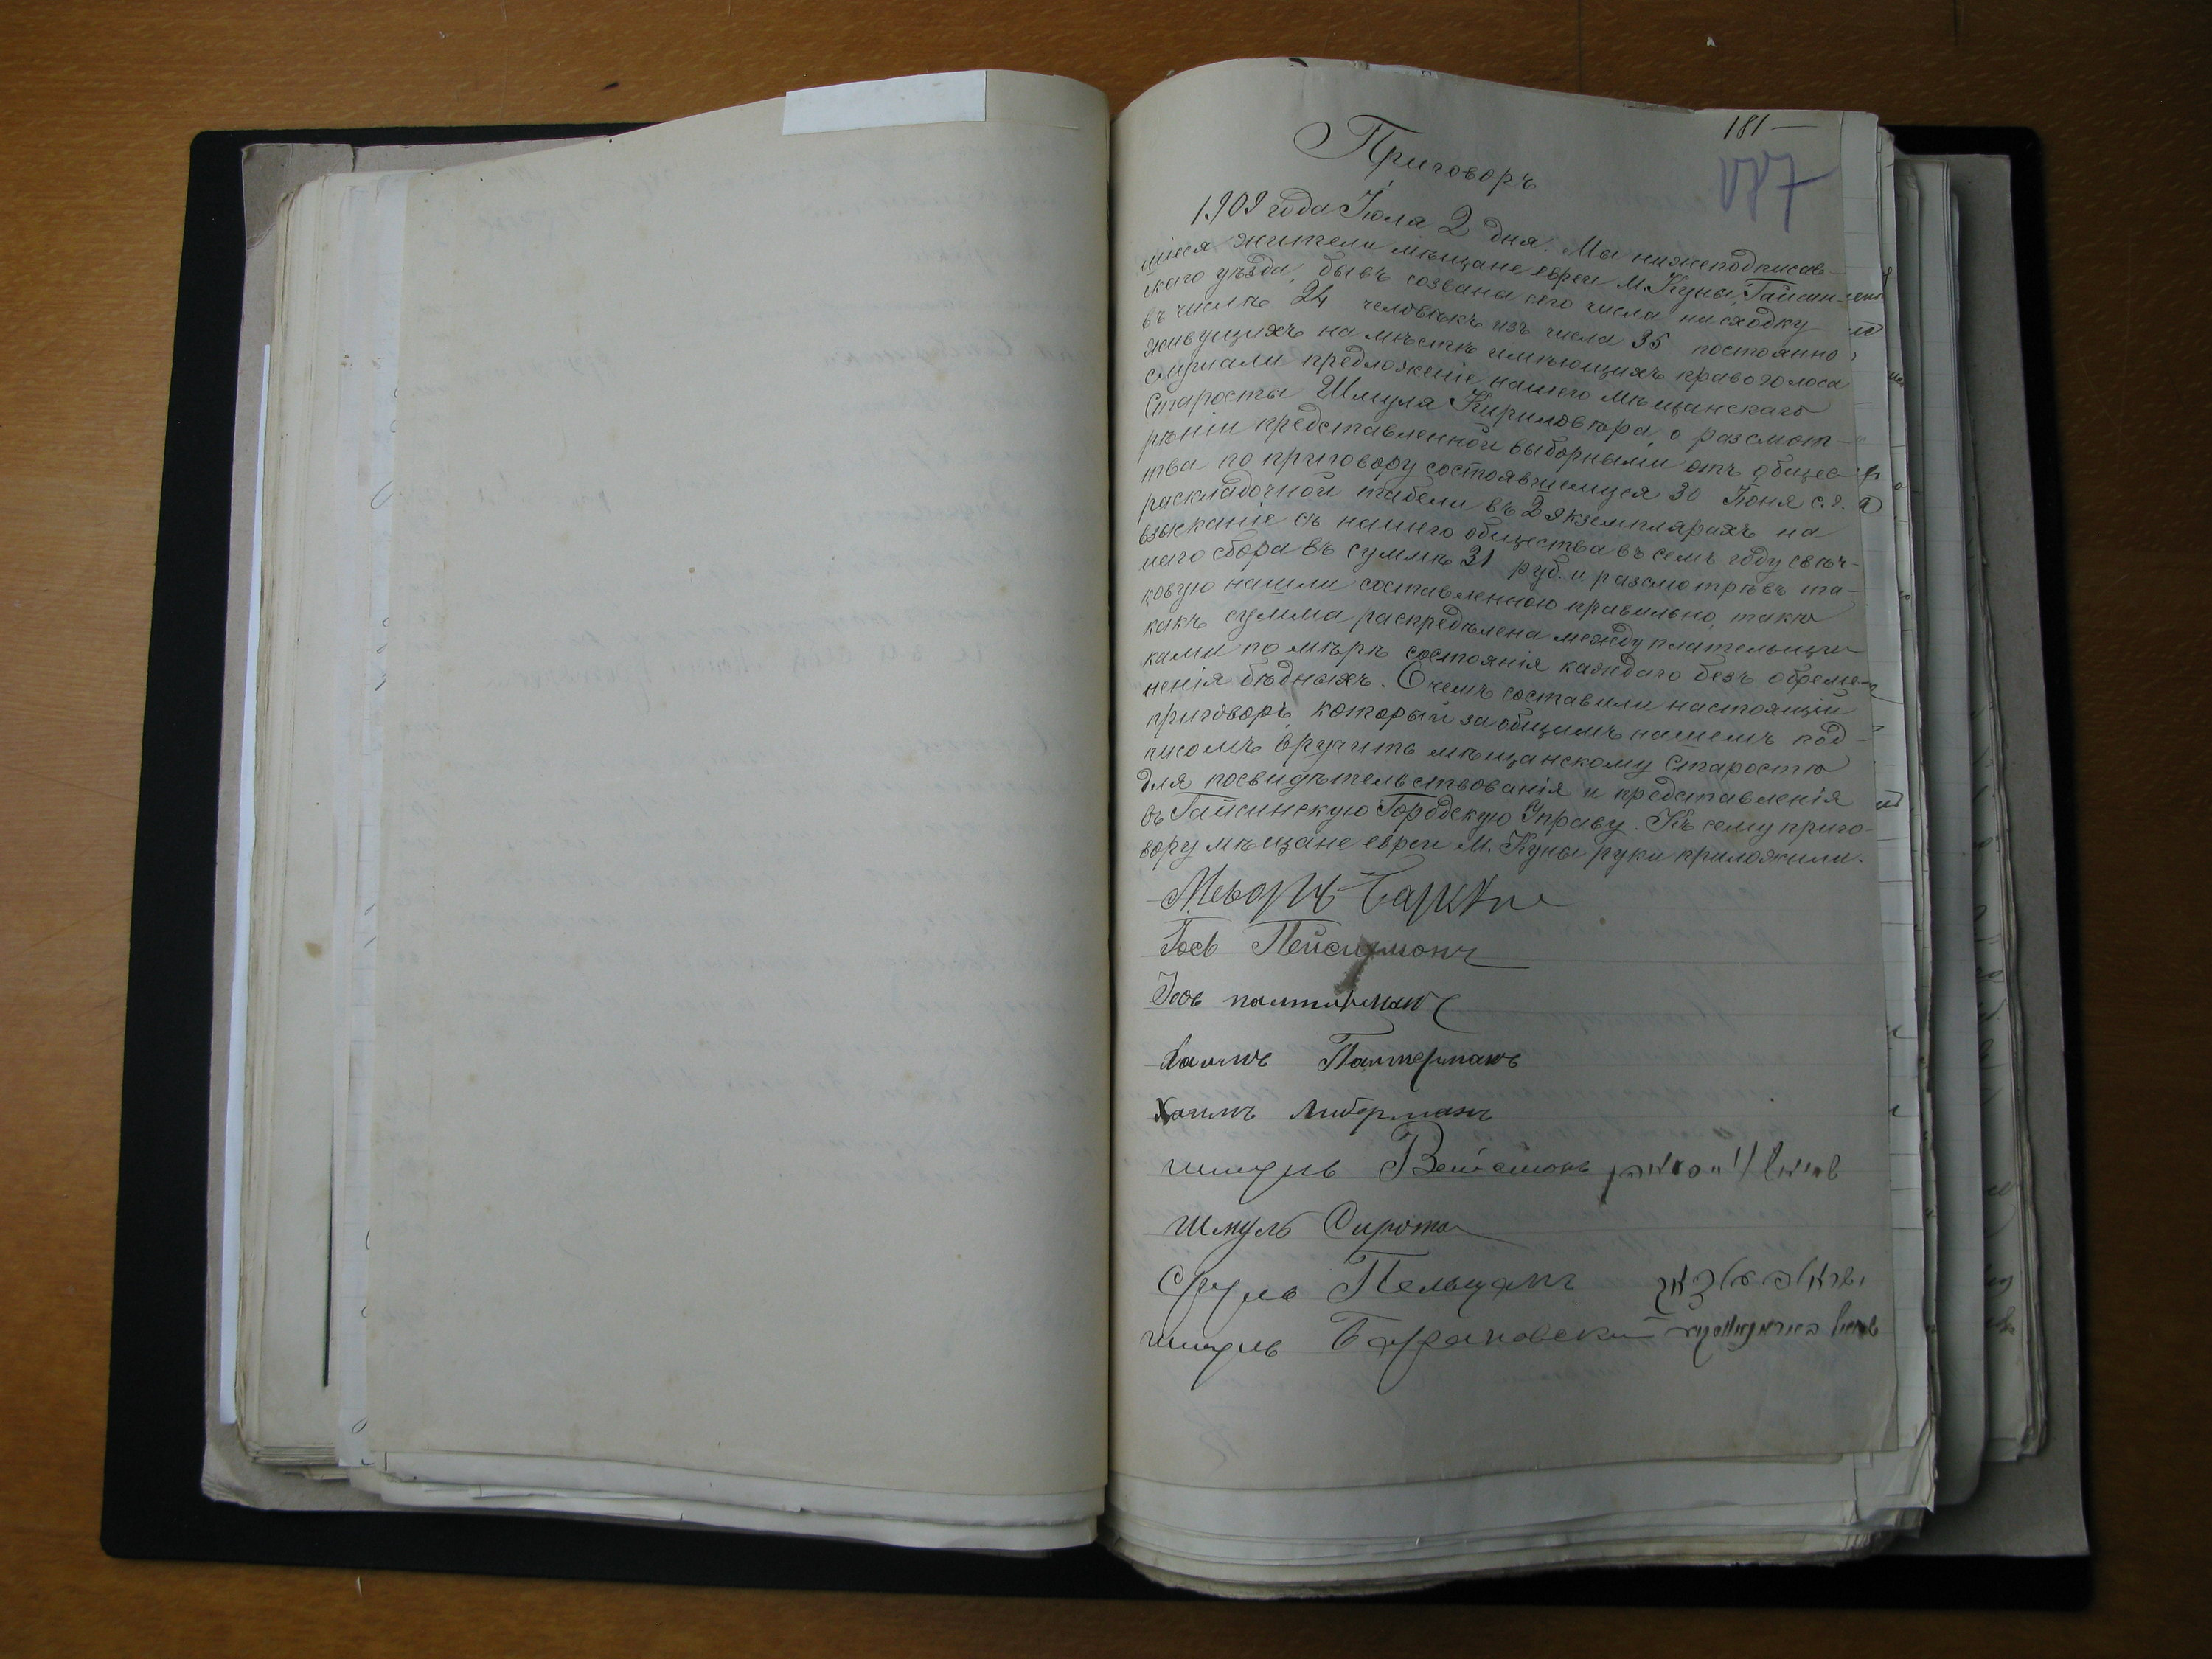 181 —
187
Приговоръ
1909 года Іюля 2 дня. Мы нижеподписав-
шіеся жители мѣщане евреи М. Куны, Гайсин-
скаго уѣзда, бывъ созваны сего числа на сходку
въ числѣ 24 человѣкъ изъ числа 35 постоянно
живущихъ на мѣстѣ имѣющихъ право голоса
слушали предложеніе нашего мѣщанскаго
Старосты Шмуля о разсмот-
рѣніи представленной выборными отъ общес-
тва по приговору состоявшемуся 30 Іюня с. г.
раскладочной табели въ 2 экземплярахъ на
взысканіе съ нашего общества въ семъ году свѣч-
наго сбора въ суммѣ 31 руб. и разсмотрѣвъ та-
ковую нашли составленною правильно, такъ
какъ сумма распредѣлена между плательщи
ками по мѣрѣ состоянія каждаго безъ обреме-
ненія бѣдныхъ. О чемъ составили настоящій
приговоръ, который за общимъ нашемъ под-
писомъ вручить мѣщанскому Старостѣ
для посвидѣтельствованія и представленія
въ Гайсинскую Городскую Управу. Къ сему приго-
вору мѣщане евреи М. Куны руки приложили.
Іось
Іось
Хаимъ Палтерманъ
Хаимъ Либерманъ
шмуль Вайсманъ שמואל ווייסמאן
Шмуль Сирота
Сруль Пельцманъ ישראל
шмуль Барановскій שמואל